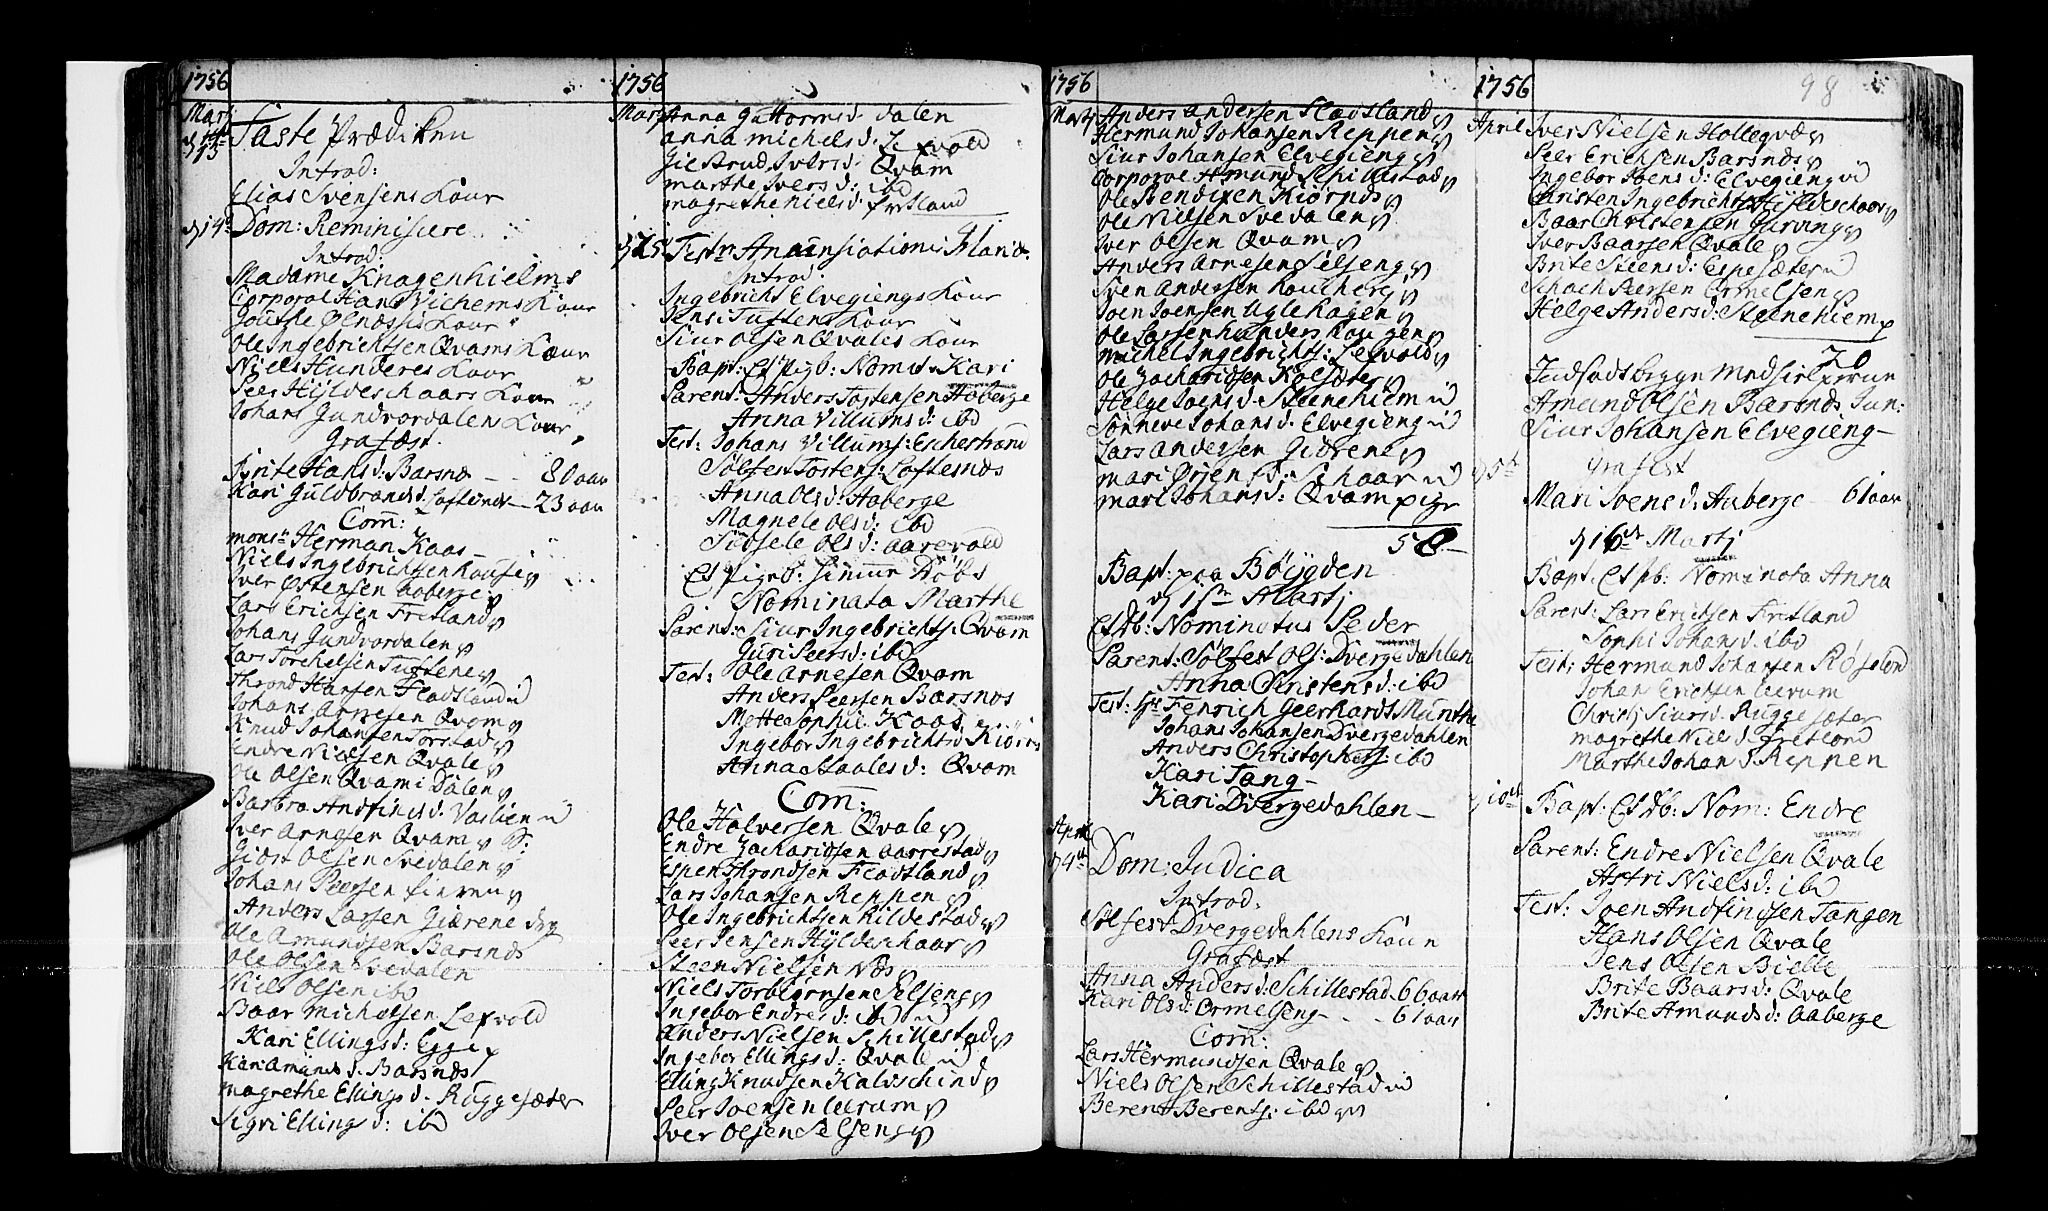 1756
Martj
Faste Prædiken
Introd:
Elias Svensens Kour
d 14de Dom: Reminiscere
Introd:
Madame Knagenhielms
Corporal Hans Vichems Kour
Gouthe Ølnæssis Kour
Ole Ingebrichtsen Qvams Kour
Niels Hunderes Kour
Peer Hyldeschaars Kour
Johans Gundvordalen Kour
Grafæst.
Brite Hans d: Barsnæs - - 80 aar
Kari Guldbrands d. Loftenæs - 23 aar
Com:
Herman Kaas
Niels Ingebrichtsen
Iver Ostensen Aaberge
Lars Erichsen Fretland
Johans Gundvordalen
Lars Torchelsen Tuftene
Thrond Hansen Fladsland
Johans Arnesen Qvam
Knud Johansen Torstad
Endre Nielsen Qvale
Ole Olsen Qvam i Dalen
Barbro Andfinds d: Vaslien
Iver Arnesen Qvam
Olsen Svedalen
Johans Peersen
Anders Larsen Giærene
Ole Amundsen Barsnæs
Ole Olsen Svedalen
Niels Olsen ibd
Baar Michelsen Lexvold
Kari Ellings d: Egge
Kari Amunds d. Barsnæs
magrethe Ellings d. Ruggesæter
Sigri Ellings d: ibd
1756
Martj
Anna Guttorms d: dalen
anna michels d: Lexvold
Giertrud Ivers d: Qvam
marthe Ivers d: ibd
magrethe Niels d: fretland
d 25 Festo Anuntiationis Mariæ
Introd:
Ingebricht Elvegiengs Kour
Jens Tuftens Kour
Siur Olsen Qvales Kour
Bapt: Et pigeb: Nomin. Kari
Parent: Anders Tostensen Aaberge
Anna Villums d: ibd
Test: Johans Villums: Eschestrand
Sølfest Tostens: Loftenæs
Anna Ols d: Aaberge
Magnele Ols d: ibd
Ols d: aarevold
Et pigeb: hjemme Døbt
Nominata Marthe
Parent: Siur Ingebrichts: Qvam
Guri Peers d: ibd
Test: Ole Arnesen Qvam
Anders Peersen Barsnæs
Mette Sophie Kaas
Ingebor Ingebrichts d. Kiørnæs
Anna Staales d: Qvam
Com:
Ole Halversen Qvale
Endre Zachariasen Aarrestad
Espen Throndsen Fladsland
Lars Johansen Reppen
Ole Ingebrichtsen Kildestad
Peer Jensen Hyldeschaar
Steen Nielsen Næs
Niels Torbiørnsen Selseng
Ingebor Endres d: ibd
Anders Nielsen Schillestad
Ingebor Ellings d: Qvale
Elling Knudsen Kalvschind
Peer Joensen Leerum
Iver Olsen Selseng
1756
Martj
Anders Andersen Fladsland
Hermund Johansen Reppen
Siur Johansen Elvegieng
Corporal Amund Schillestad
Ole Bendixen Kiørnæs
Ole Nielsen Svedalen
Iver Olsen Qvam
Anders Arnesen Selseng
Sven Andersen
Joen Joensen Uglehagen
Ole Larsen
Michel Ingebrichts: Lexvold
Ole Zachariasen Kolsæter
Helge Joens d: Steenehiem
Sønneve Johans d: Elvegieng
Lars Andersen Giærene
Mari Ørjens d: Schaar
Mari Johans d: Qvam pige
58
Bapt: paa Bøygden
Martj
Et Db: Nominatus Peder
Parent: Sølfest Ols: Dvergedahlen
Anna Christens d: ibd
Test: Hr Fenrich Geerhardt Munthe
Johans Johansen Dvergedahlen
Anders Christophers: ibd
Kari Tang
Kari Dvergedahlen
April
d 4de Dom: Judica
Introd.
Sølfest Dvergedahlens Koun
Grafæst
Anna Anders d: Schillestad 66 aar
Kari Ols d: Ormelseng - - - 61 aar
Com:
Lars Hermundsen Qvale
Niels Olsen Schillestad
Berent Berents: ibd
1756
98
April
Iver Nielsen Hollegvæ
Peer Erichsen Barsnæs
Ingebor Joens d: Elvegieng
Christen Ingebrichts: Hyldeschaar
Baar Christensen Gurving
Iver Baarsen Qvale
Brite Steens d: Espesæter
Schach Peersen Ormelseng
Helge Anders d: Steenehiem
20
Amund Olsen Barsnæs Jun:
Siur Johansen Elvegieng
d 5te Grafest
Mari Svens d: Aaberge - 61 aar
d 16de Martj
Bapt: Et pb: Nominata Anna
Parent: Lars Erichsen Fretland
Sophi Johans d: ibd
Test: Hermund Johansen
Johan Erichsen Leerum
Christj Siurs d: Ruggesæter
magrethe Niels d: fretland
Marthe Johans d: Reppen
d 10de Bapt: Et Db: Nom: Endre
Parent: Endre Nielsen Qvale
Astri Niels d: ibd
Test: Joen Andfindsen Tangen
Hans Olsen Qvale
Jens Olsen Bielle
Brite Baars d: Qvale
Brite Amunds d: Aaberge